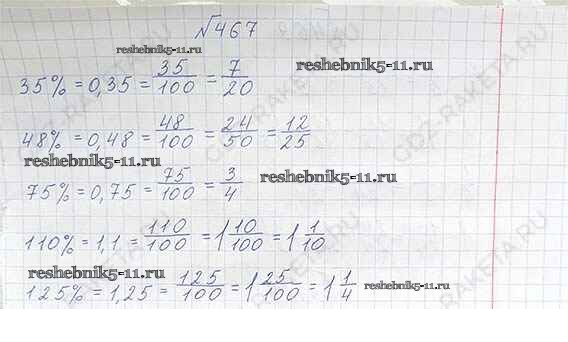 №467
reshebnik5-11.ru
reshebnik5-11.ru
35% = 0,35 = 35/100 = 7/20
48% = 0,48 = 48/100 = 24/50 = 12/25
reshebnik5-11.ru
reshebnik5-11.ru
75% = 0,75 = 75/100 = 3/4
110% = 1,1 = 110/100 = 1 10/100 = 1 1/10
reshebnik5-11.ru
reshebnik5-11.ru
125% = 1,25 = 125/100 = 1 25/100 = 1 1/4
GDZ-RAKETA.RU
GDZ-RAKETA.RU